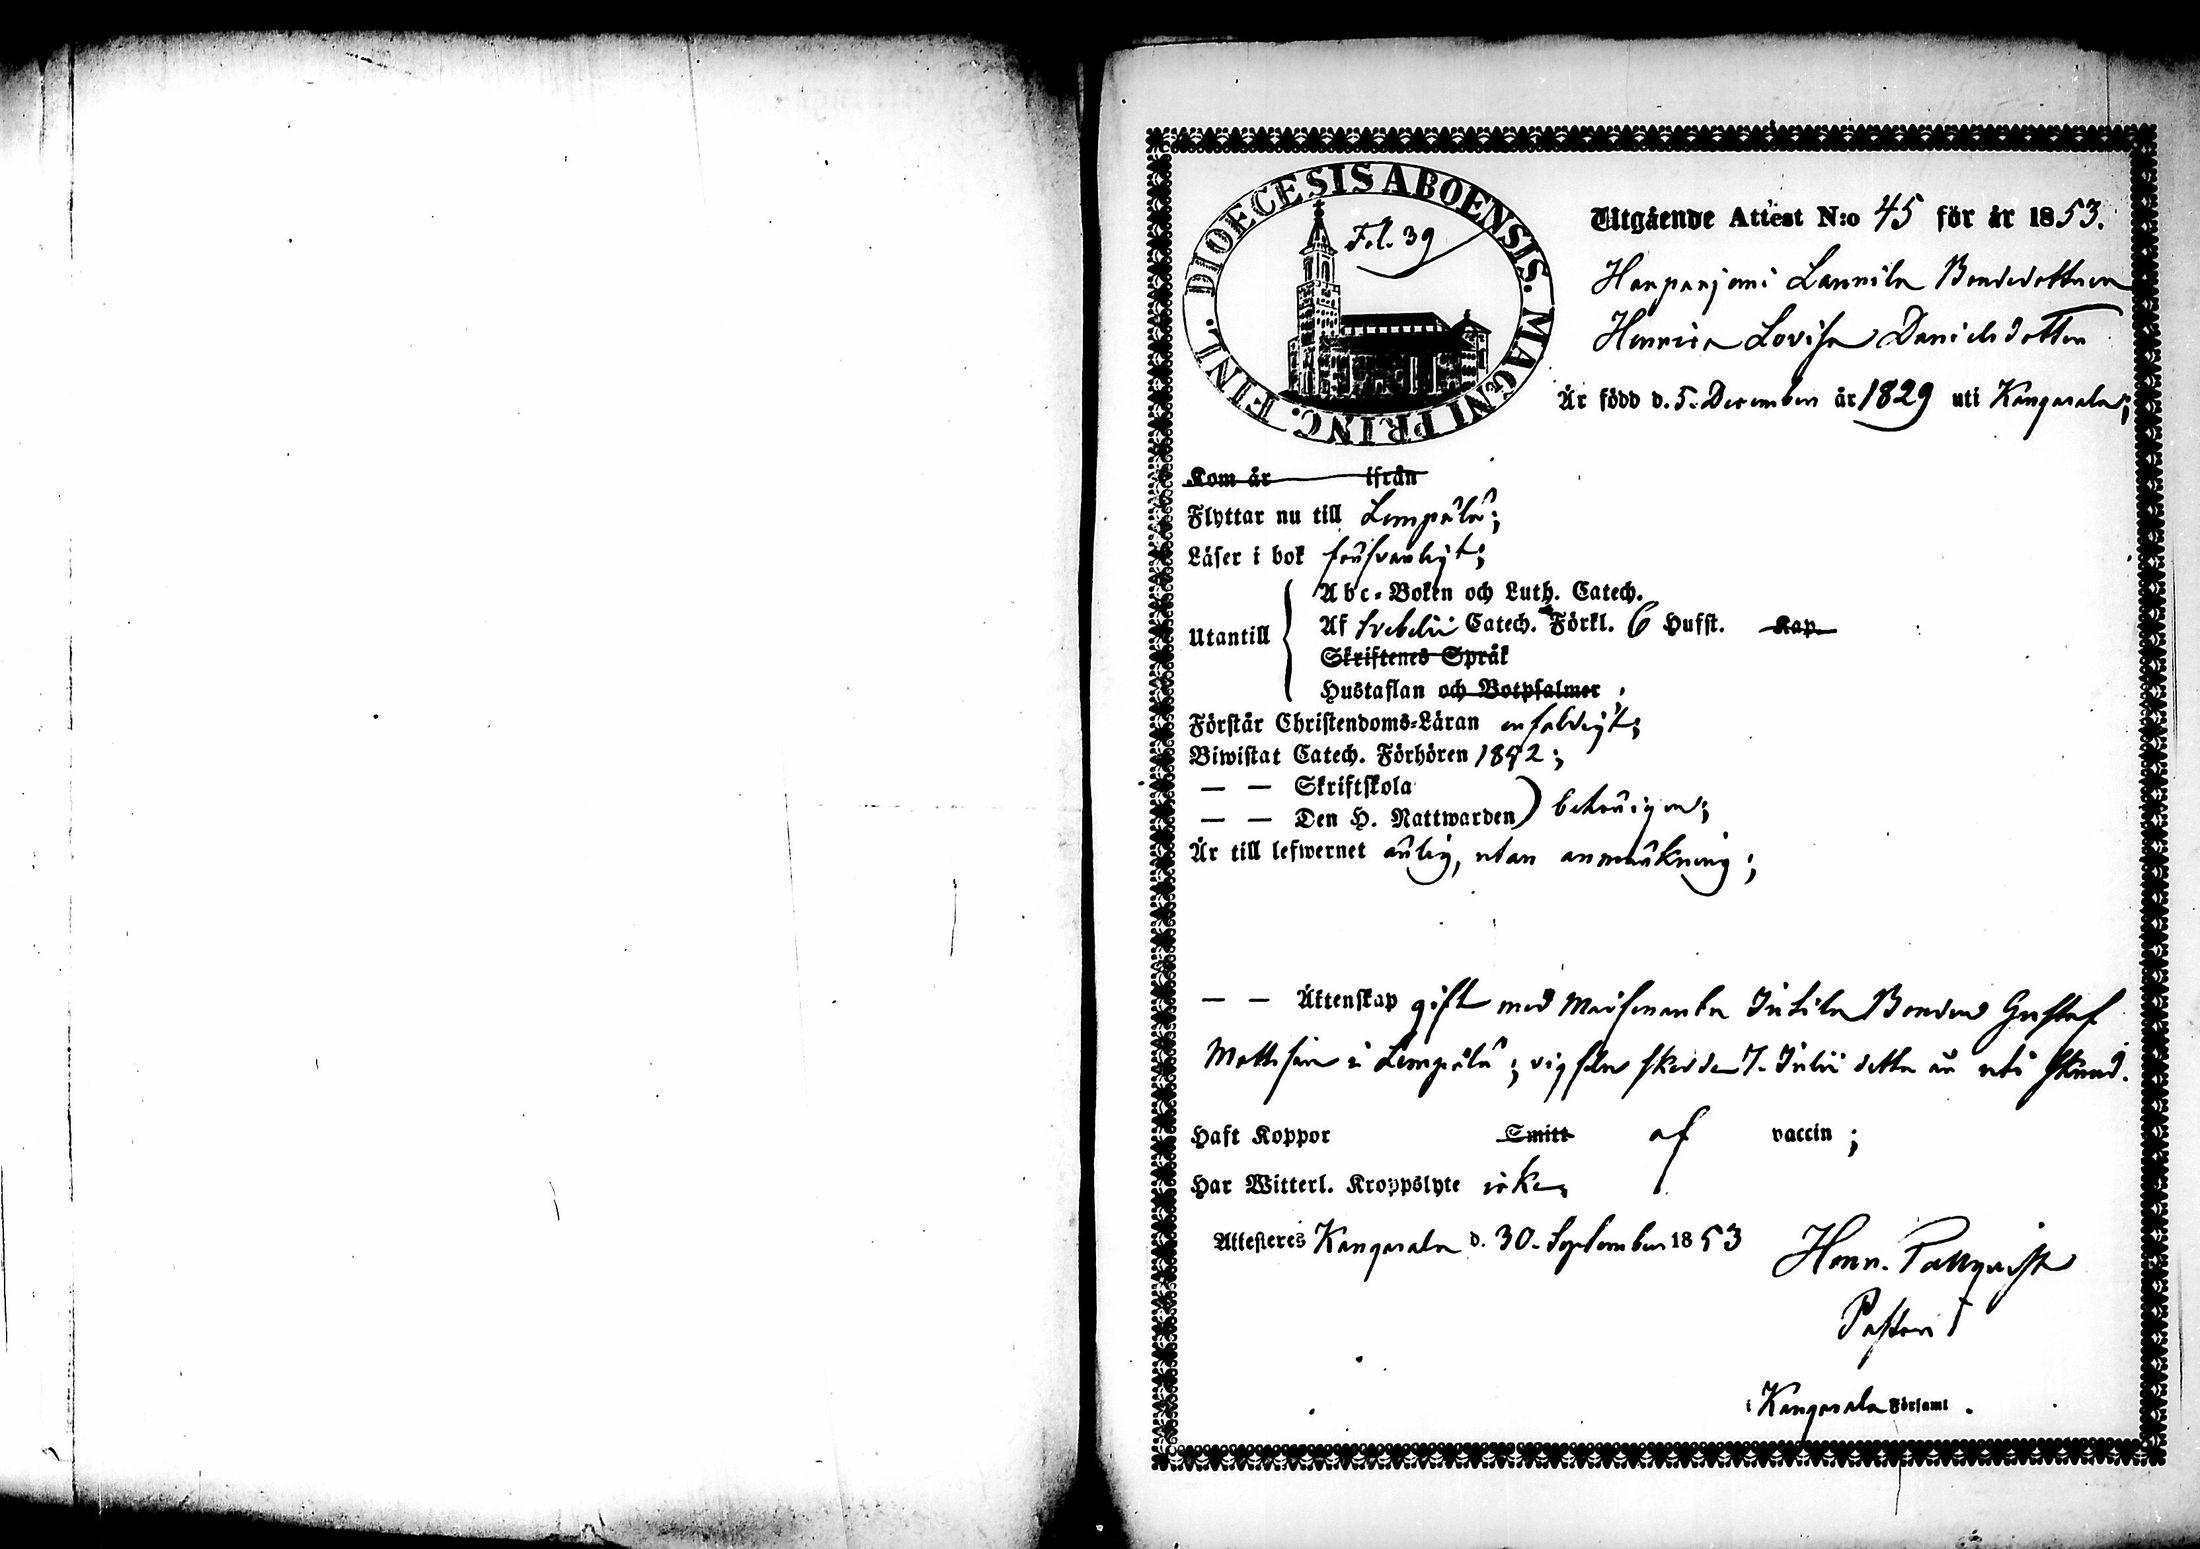 DIOECESIS ABOENSIS. MAGNI PRINC. FINL.
Fol. 39
Utgående Attest N:o 45 för år 1853.
Harpanjemi Lannila Bondedottren
Henrica Lovisa Danielsdotter
Är född d. 5. December år 1829 uti Kangasala;
Kom år ifrån
Flyttar nu till Lempälä;
Läser i bok försvarligt;
Utantill
Abc-Boken och Luth. Catech.
Af Svebelii Catech. Förkl. 6 Hufst. Kap.
Skriftenes Språk
Hustaflan och Botpsalmer
Förstår Christendoms-Läran enfaldigt;
Biwistat Catech. Förhören 1852;
— — Skriftskola
— — Den H. Nattwarden behörigen;
Är till lefwernet ärlig, utan anmärkning;
— — Äktenskap gift med Bonden Gustaf
Mattsson i Lempälä; vigseln skedde 7. Julii detta år uti
Haft Koppor Smitt af vaccin;
Har Witterl. Kroppslyte icke,
Attesteras Kangasala d. 30. September 1853
Henr. Pallqvist
Pastor
i Kangasala Församl.